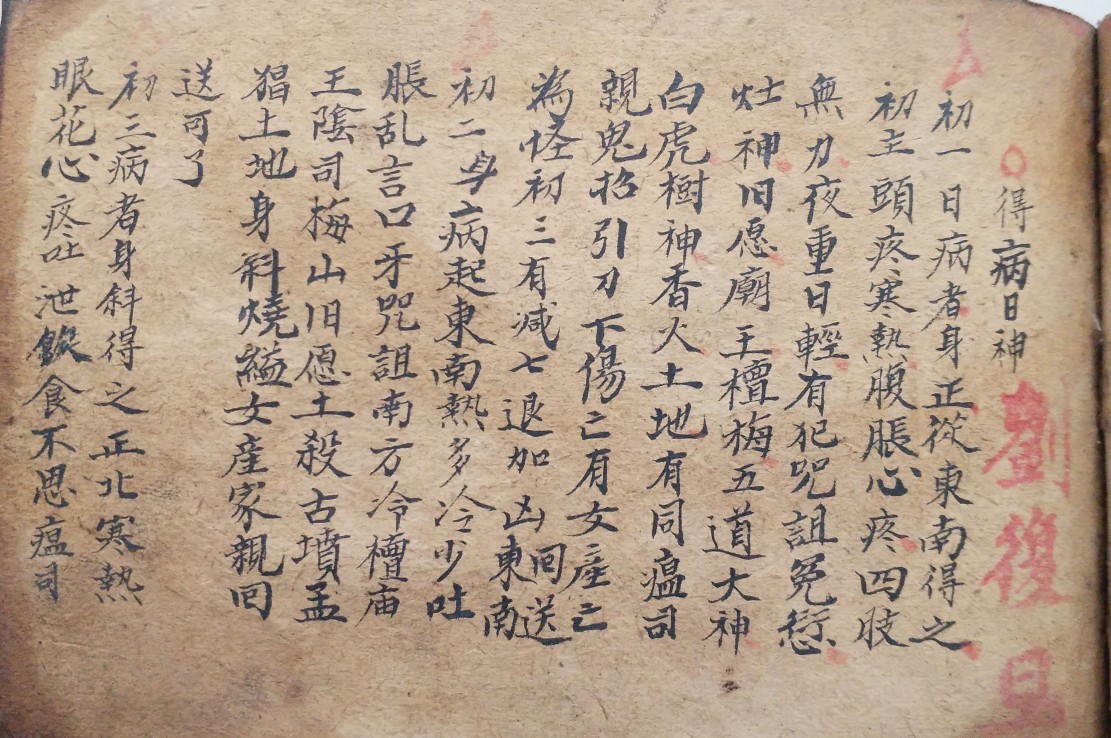 劉復旦
得病日神
初一日病者身正從東南得之
初主頭疼寒熱腹脹心疼四肢
無力夜重日輕有犯咒詛冤愆
灶神旧愿廟王檀梅五道大神
白虎樹神香火土地有同瘟司
親鬼招引刀下傷亡有女産亡
為怪初三有减七退加凶東南回送
初二身病起東南熱多冷少吐
脹乱言口牙咒詛南方冷檀庙
王陰司梅山旧愿土殺古墳孟
猖土地身斜燒縊女産家親回
送可了
初三病者身斜得之正北寒熱
眼花心疼吐泄飲食不思瘟司